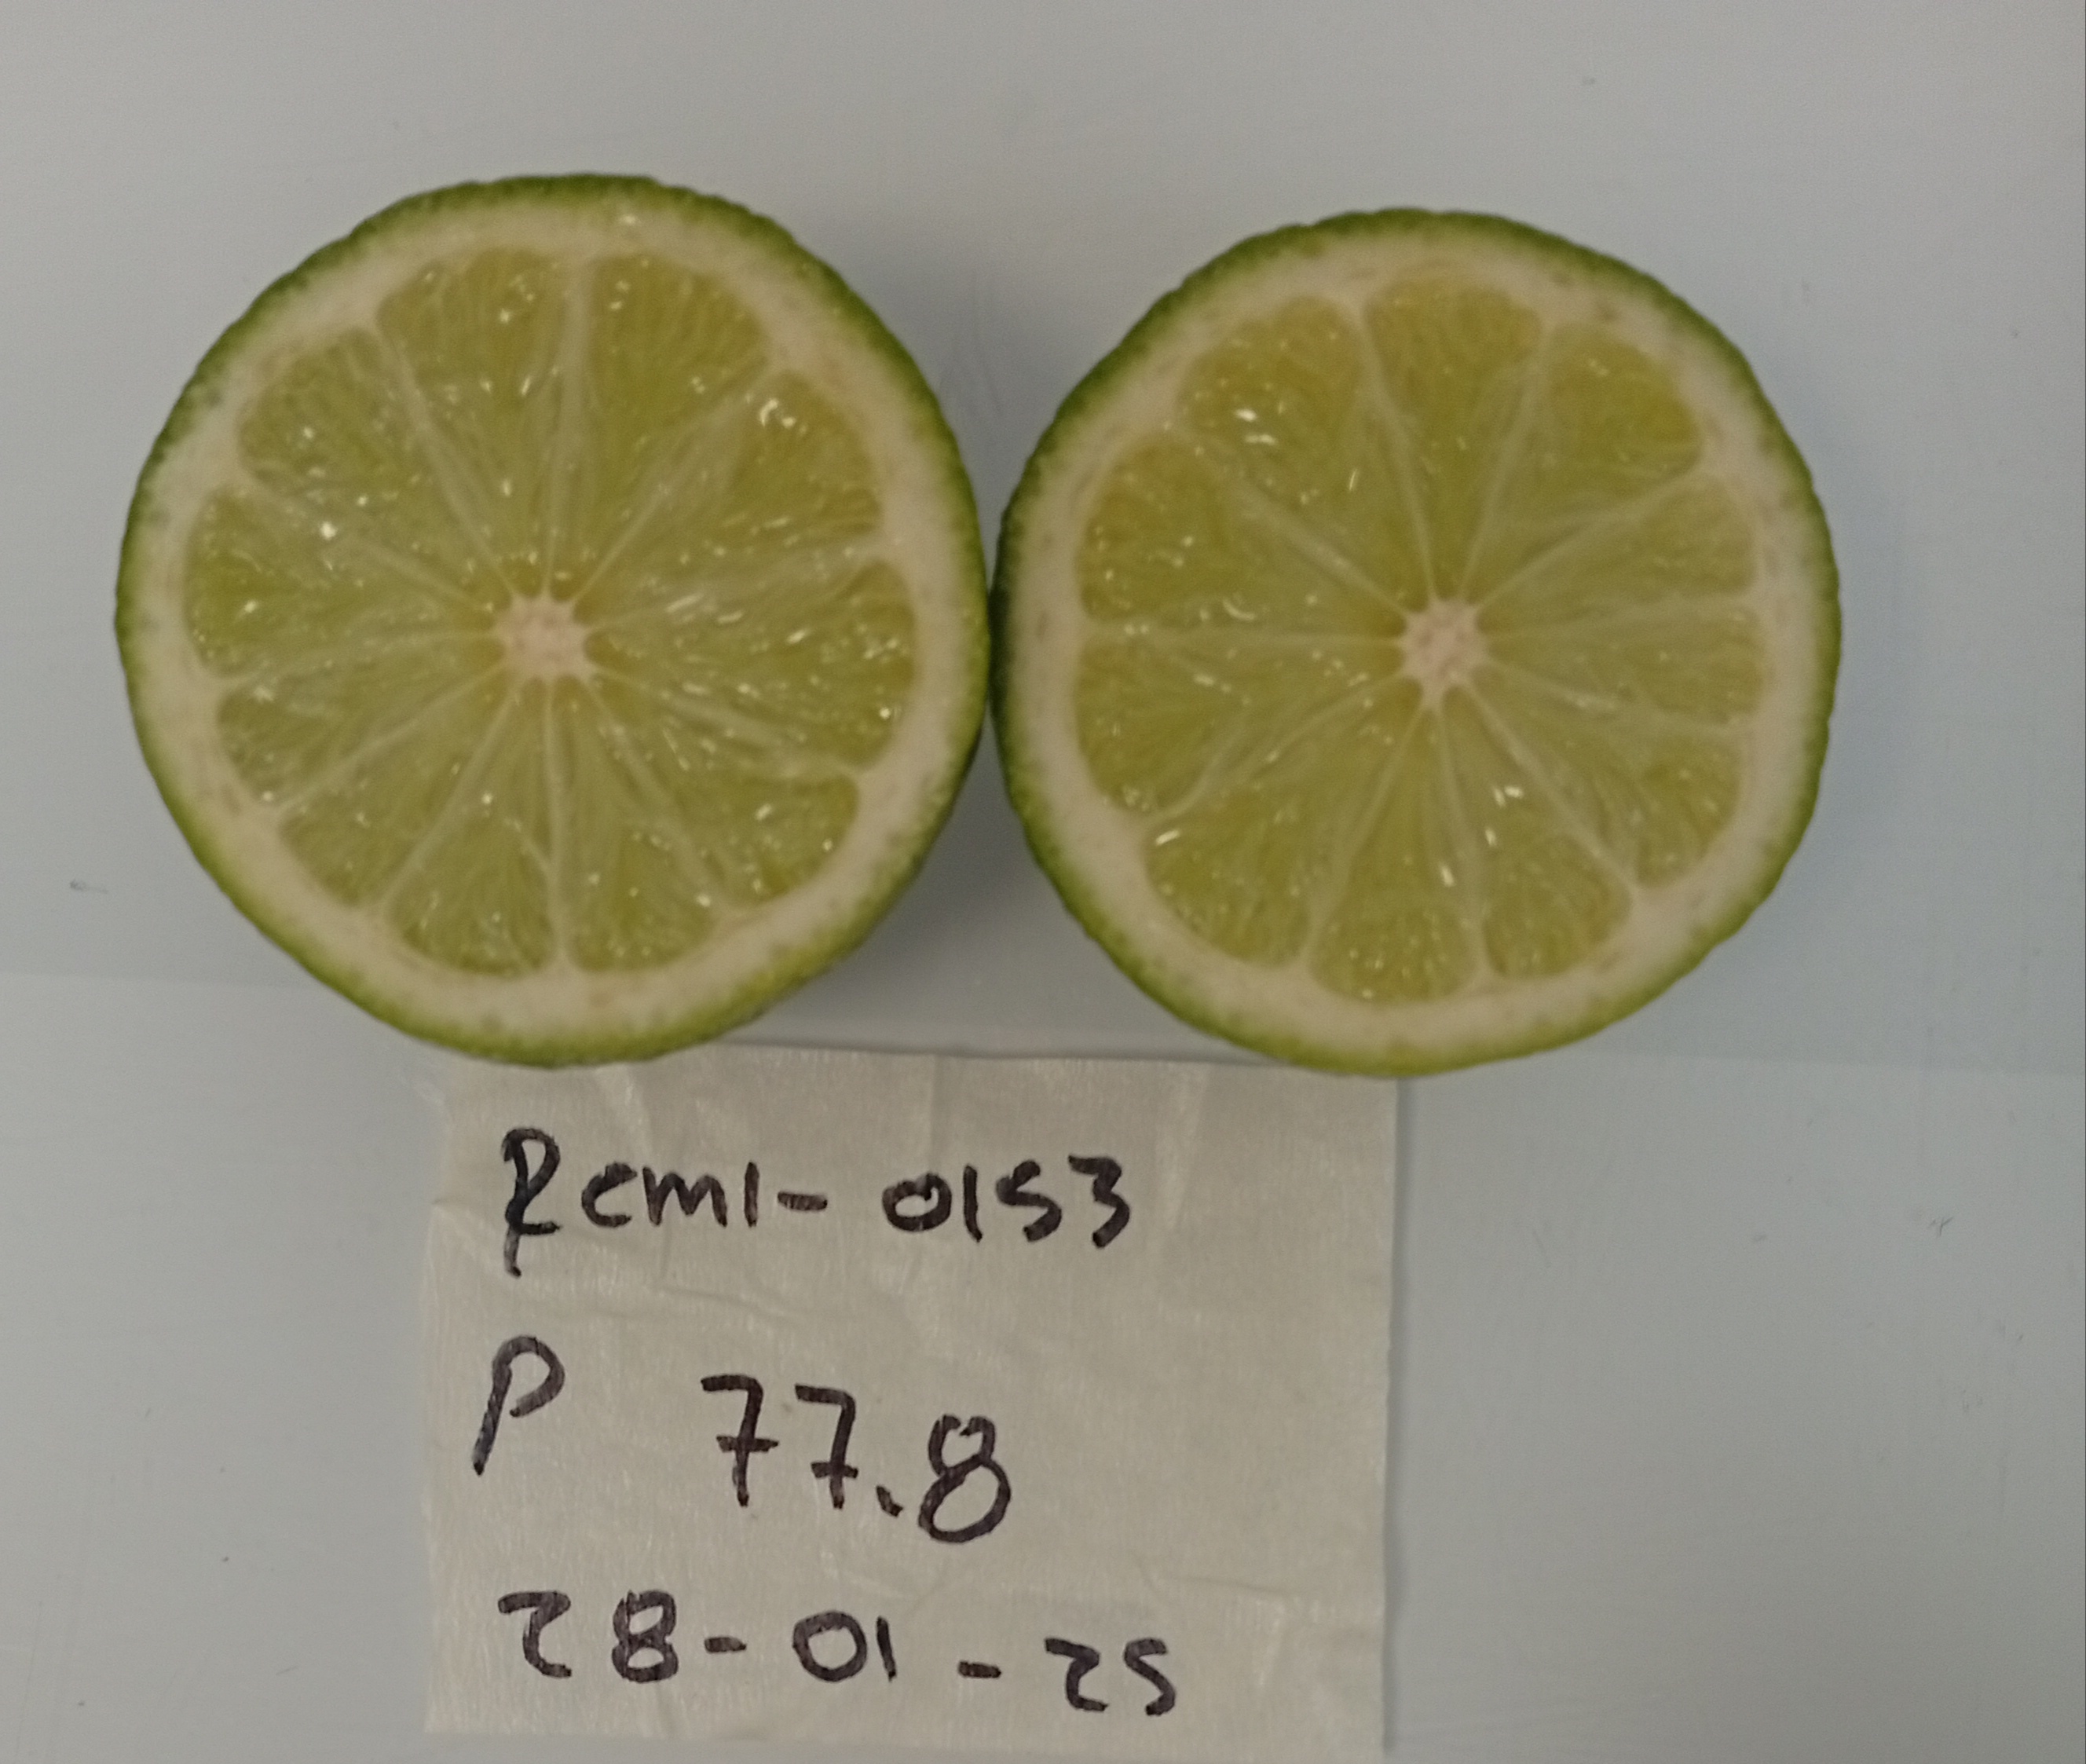 Rcml- 0153
P 77.8
28-01-25